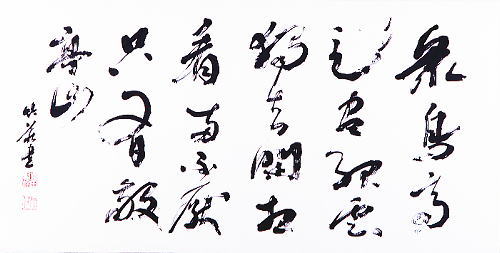 衆鳥高
飛盡孤雲
獨去閑相
看兩不厭
只有敬
亭山